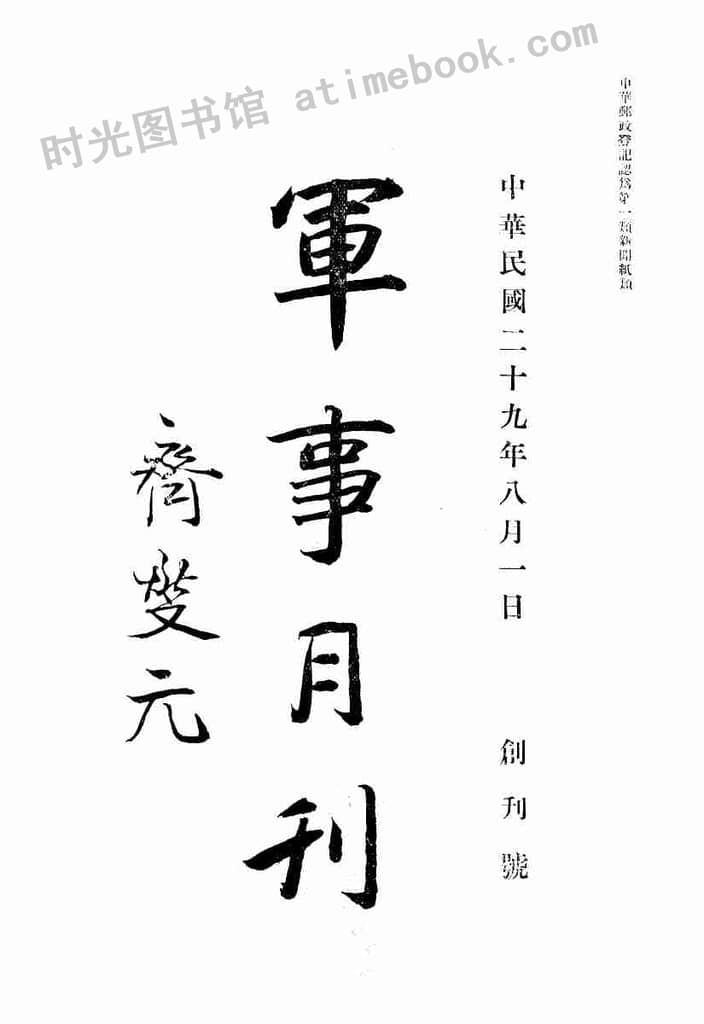 时光图书馆 atimebook.com
中華郵政登記認爲第一類新聞紙類
中華民國二十九年八月一日 創刊號
軍事月刊
齊燮元